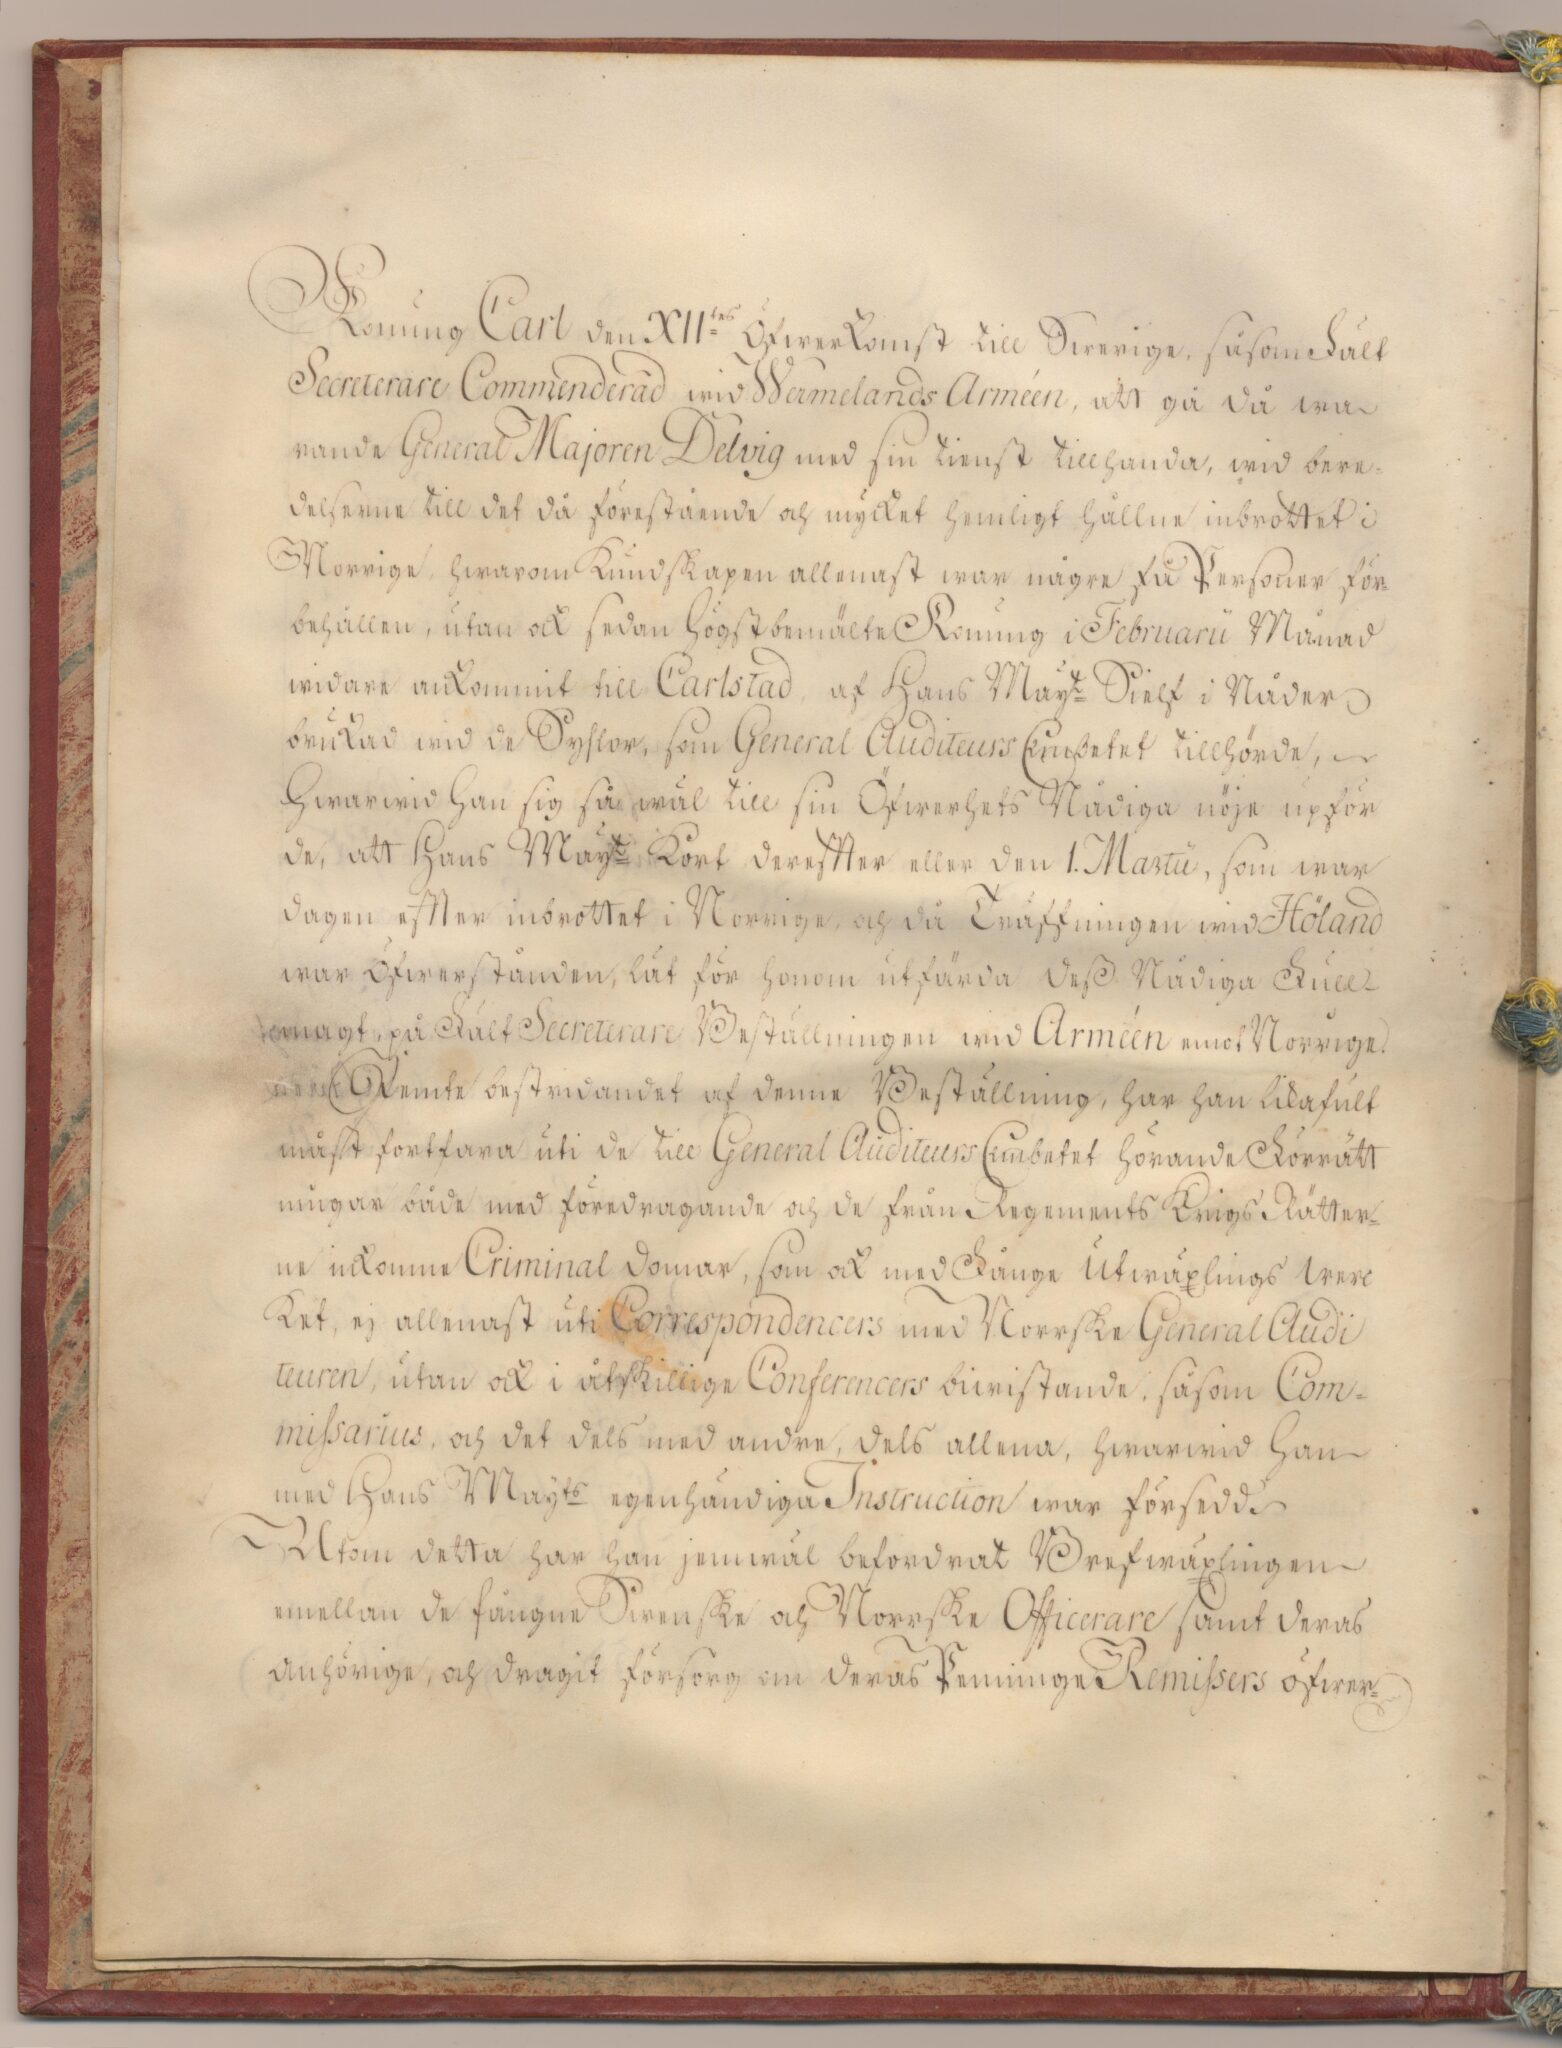 Konung Carl den XII:tes Öfwerkomst till Swerige, såsom Fält
Secreterare Commenderad wid Wermelands Arméen, att gå då wa
rande General Majoren Delvig med sin tienst tillhanda, wid bere-
delserne till det då förestående och mycket hemligt hållne inbrottet i
Norrige, hwarom Kundskapen allenast war någre få Personer för-
behållen, utan ock sedan högstbemälte Konung i Februarii Månad
widare ankommit till Carlstad, af Hans May:t Sielf i Nåder
brukad wid de Sÿslor, som General Auditeurs Embetet tillhörde,
hwarwid han sig så wäl till sin Öfwerhets Nådiga nöje upför
de, att Hans May:t Kort dereffter eller den 1. Martii, som war
dagen effter inbrottet i Norrige, och då Träffningen wid Höland
war Öfwerstånden, låt för honom utfärda deß Nådiga Full-
magt, på Fält Secreterare Beställningen wid Arméen emot Norrige.
Jemte bestridandet af denne Beställning, har han likafult
måst fortfara uti de till General Auditeurs Embetet hörande Förrätt
ningar både med föredragande och de från Regements Krigs Rätter-
ne inkomne Criminal domar, som ock med Fånge Utwäxlings wer
ket, ej allenast uti Correspondencers med Norrske General Audi
teuren, utan ock i åtskillige Conferencers biwistande, såsom Com-
missarius, och det dels med andre, dels allena, hwarwid han
med Hans May:ts egenhändiga Instruction war försedd.
Utom detta har han jemwäl befordrat Brefwäxlingen
emellan de fångne Swenske och Norrske Officerare samt deras
anhörige, och dragit försorg om deras Penninge Remissers öfwer-